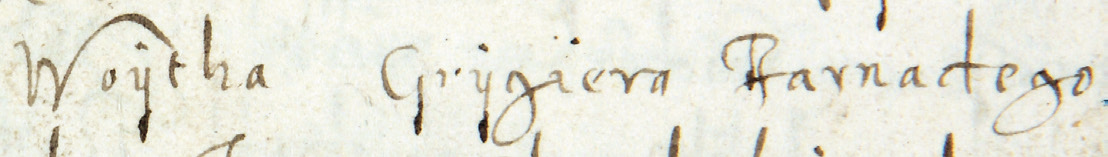 Woÿtha Grÿgiera Karnactego